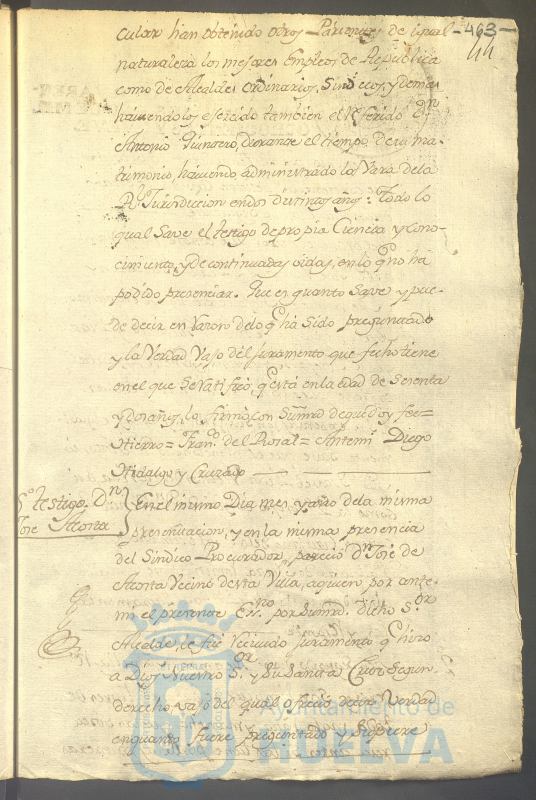 -463-
44
cular han obtenido otros Parientes de igual
naturaleza los mejores Empleos de Republica
como de Alcaldes ordinarios, Sindicos, y demas
haviendolos ejercido tambien el referido Dn
Antonio Quintero, durante el tiempo de su ma-
trimonio, haviendo administrado la Vara de la
Rl Jurisdiccion en dos distintos años: Todo lo
qual Save el testigo de propia Ciencia y Cono-
cimiento, y de continuadas oidas, en lo q no ha
podido presenciar. Que es quanto Save y pue-
de decir en razon de lo q ha Sido preguntado
y la Verdad vajo del juramento que fecho tiene
en el que Se ratificó, q está en la edad de Sesenta
y dos años, lo firmó con Sumrd de que doy fee=
Hierro= Franco del Rosal= Antemi Diego
Hidalgo y Cruzado
So testigo Dn
Jose Acosta
En el mismo Dia mes y año de la misma
presentacion, y en la misma presencia
del Sindico Procurador, parecio Dn Jose de
Acosta Vecino desta Villa, a quien por ante-
mi el presente Esno por Sumrd dicho Sor
Alcalde, le fué recivido juramento q hizo
a Dios Nuestro Sor y Su Santa Cruz Segun
derecho, vajo del qual ofrecio decir Verdad
en quanto fuere preguntado y Supiere
Ayuntamiento de
HUELVA